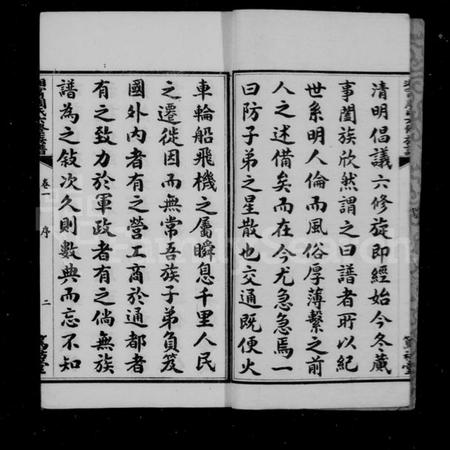 清明倡議六修旋即經始今冬蕆
事闔族欣然謂之曰譜者所以紀
世系明人倫而風俗厚薄繫之前
人之述備矣而在今尤急急焉一
曰防子弟之星散也交通既便火
車輪船飛機之屬瞬息千里人民
之遷徙因而無常吾族子弟負笈
國外內者有之營工商於通都者
有之致力於軍政者有之倘無族
譜為之敍次久則數典而忘不知
卷一 序 二